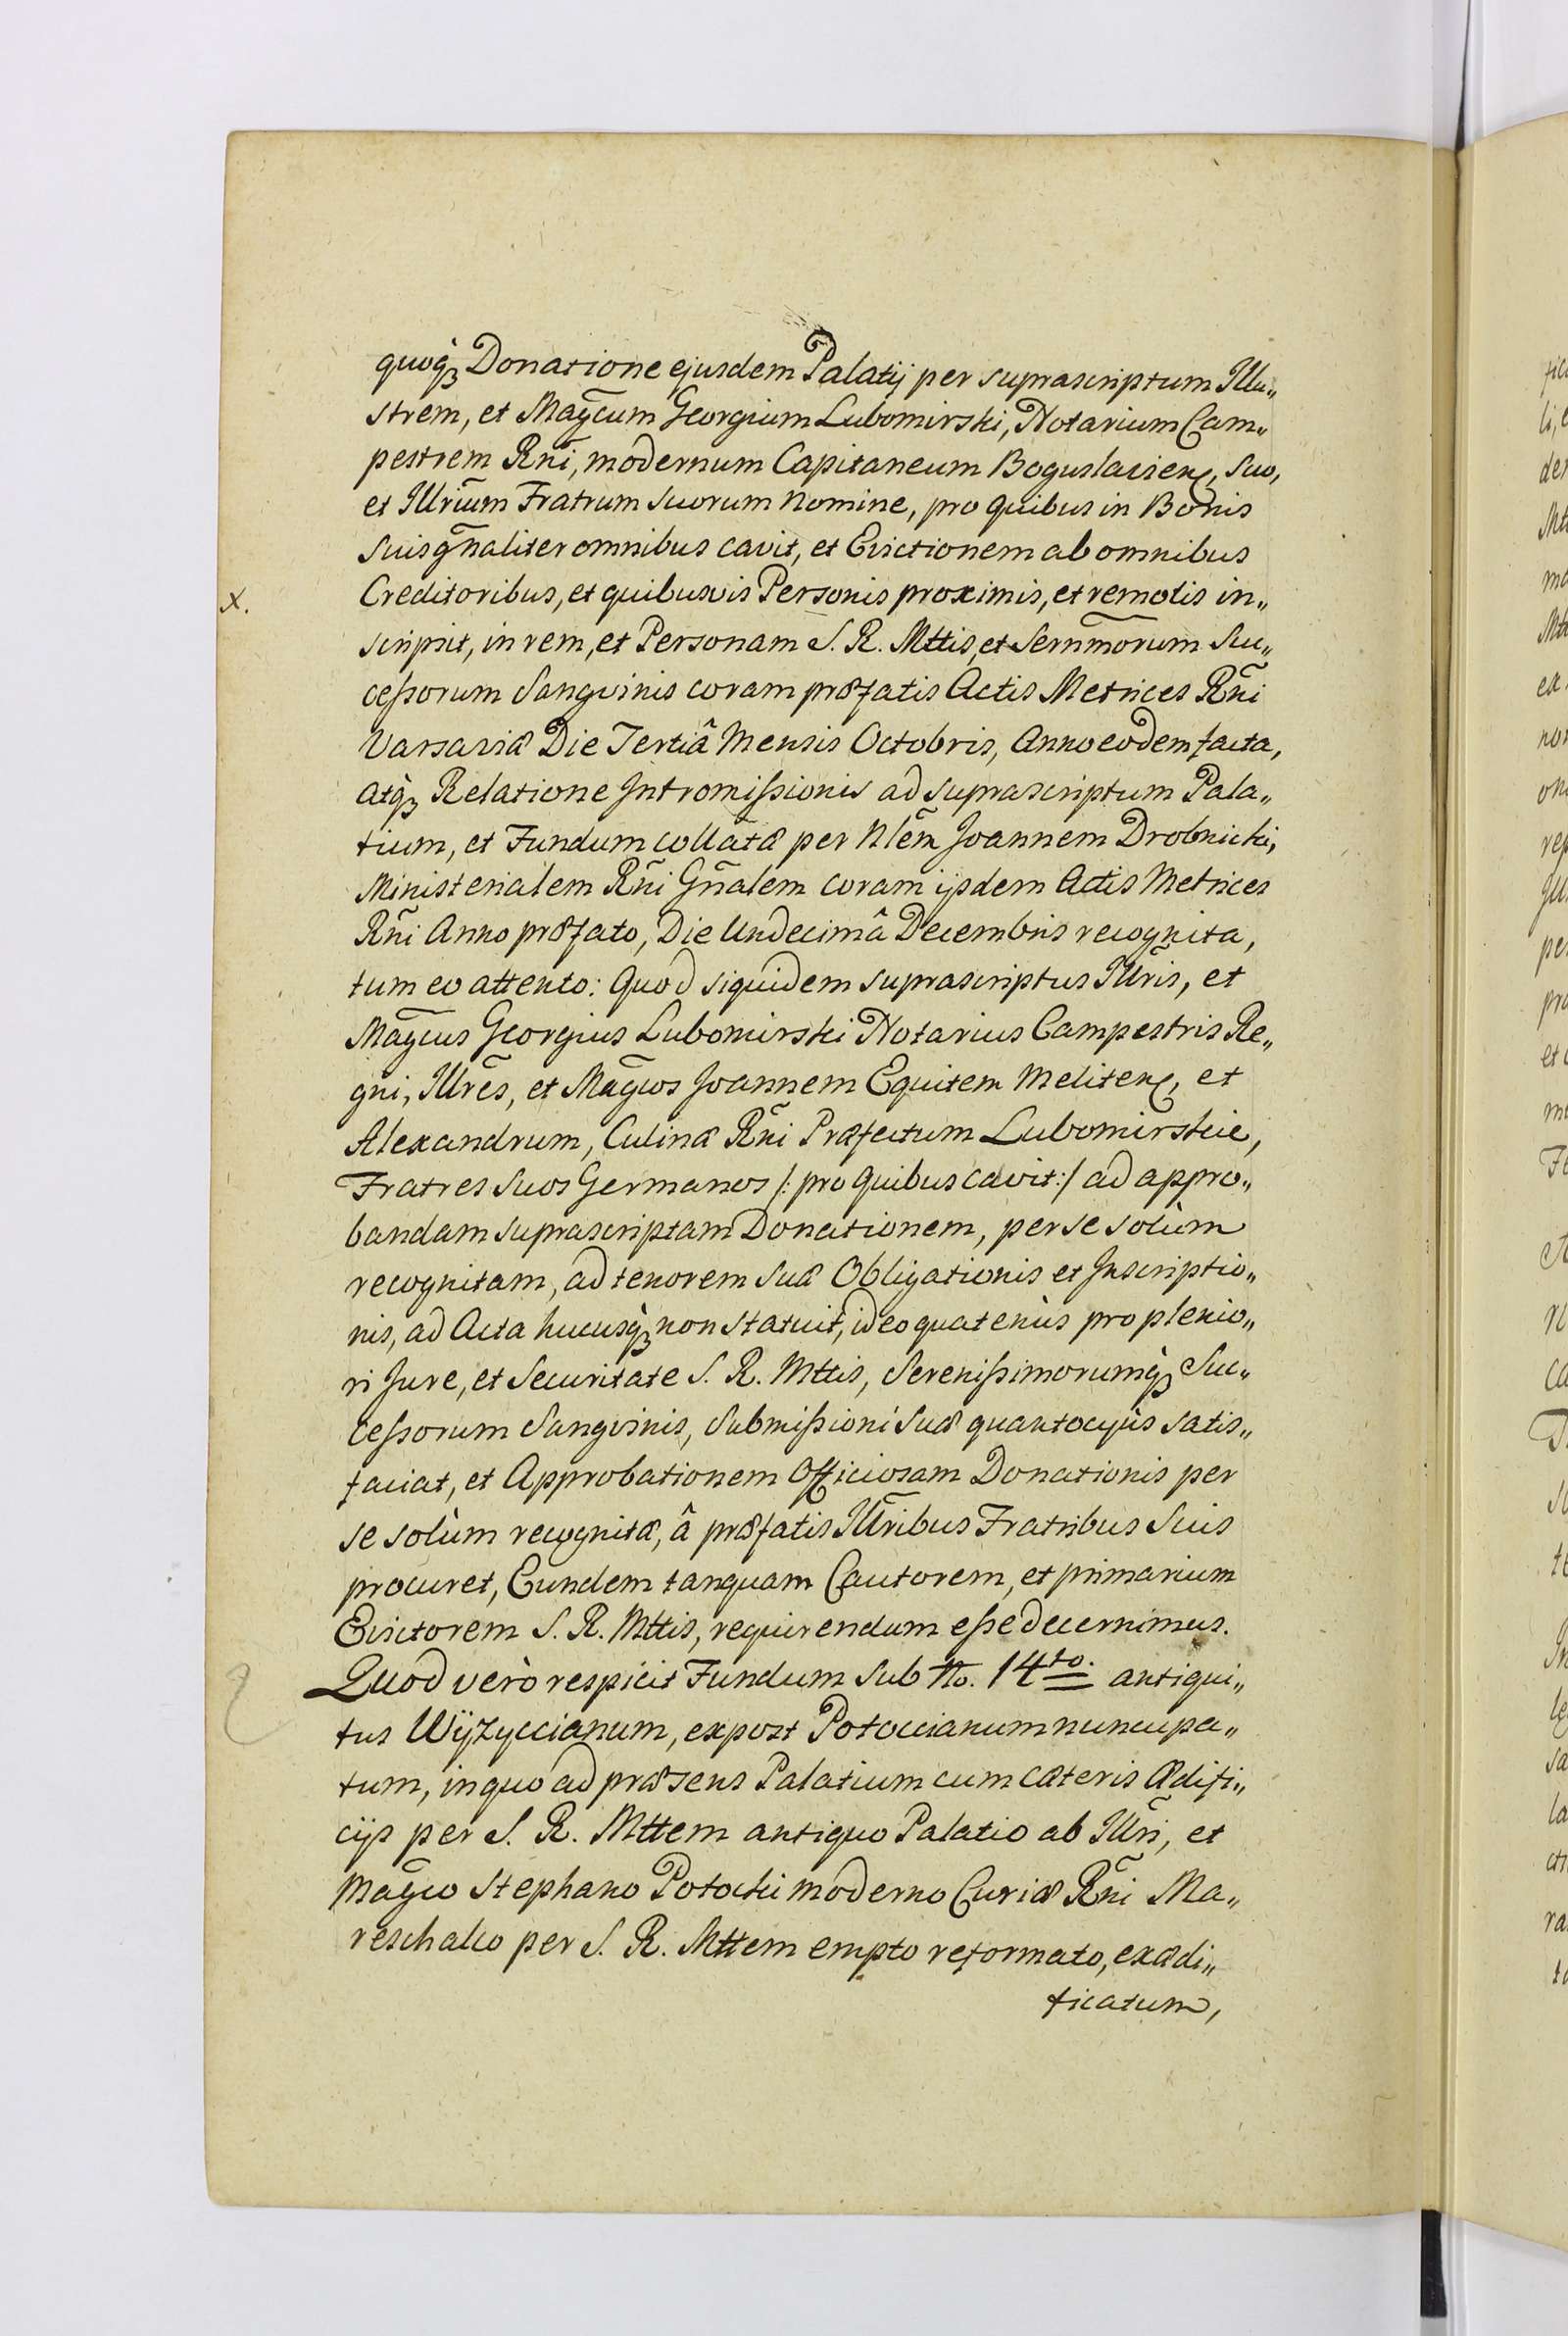 quoq̀ꝫ Donatione ejusdem Palatij per suprascriptum Illu„
strem, et Magc̃um Georgium Lubomirski, Notarium Cam„
pestrem Rñi, modernum Capitaneum Boguslavienꝭ, suo,
et Illrĩum Fratrum suorum Nomine, pro quibus in Bonis
suis gñaliter omnibus cavit, et Evictionem ab omnibus
x. Creditoribus, et quibusvis Personis proximis, et remotis in„
scripsit, in rem, et Personam S. R. Mttis, et Sernm̃orum Suc„
cessorum Sangvinis coram præfatis Actis Metrices Rñi
Varsaviæ Die Tertiâ Mensis Octobris, Anno eodem facta,
atq̀ꝫ Relatione Intromissionis ad suprascriptum Pala„
tium, et Fundum collatæ per Nlẽm Joannem Drobnicki,
Ministerialem Rñi Gñalem coram ijsdem Actis Metrices
Rñi Anno præfato, Die Undecimâ Decembris recognita,
tum eo attento: Quod siquidem suprascriptus Illrĩs, et
Magc̃us Georgius Lubomirski Notarius Campestris Re„
gni, Illrẽs, et Magc̃os Joannem Equitem Melitenꝭ, et
Alexandrum, Culinæ Rñi Præfectum Lubomirskie,
Fratres suos Germanos /: pro quibus cavit :/ ad appro„
bandam suprascriptam Donationem, per se solùm
recognitam, ad tenorem suæ Obligationis et Inscriptio„
nis, ad Acta hucusq̀ꝫ non statuit, ideo quatenùs pro plenio„
ri Jure, et Securitate S. R. Mttis, Serenissimorumq̀ꝫ Suc„
cessorum Sangvinis, Submissioni suæ quantocyùs satis„
faciat, et Approbationem Officiosam Donationis per
se solùm recognitæ, â præfatis Illrĩbus Fratribus suis
procuret, Eundem tanquam Cautorem, et primarium
Evictorem S. R. Mttis, requirendum esse decernimus.
Quod verò respicit Fundum sub No. 14to. antiqui„
tus Wÿzyccianum, expost Potoccianum nuncupa„
tum, in quo ad præsens Palatium cum cæteris Ædifi„
cijs per S. R. Mttem antiquo Palatio ab Illrĩ, et
Magc̃o Stephano Potocki moderno Curiæ Rñi Ma„
reschalco per S. R. Mttem empto reformato, exædi„
ficatum,